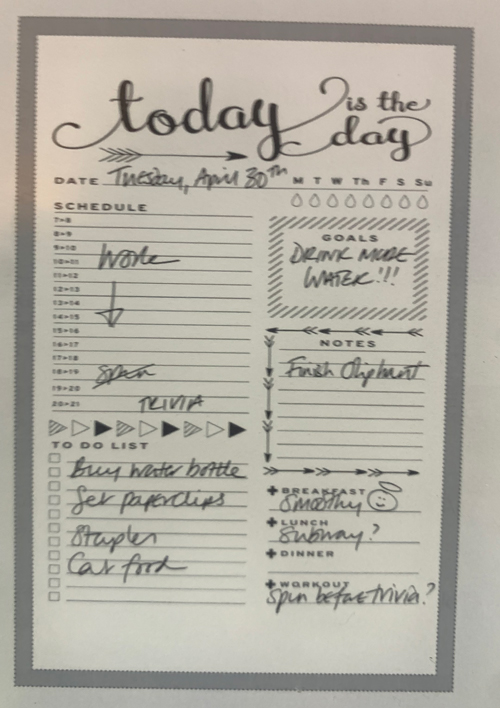 today is the day
DATE Tuesday, April 30TH M T W Th F S Su
SCHEDULE
7>8
8>9
9>10
10>11 Work
11>12
12>13
13>14
14>15
15>16
16>17
17>18
18>19 Spin
19>20
20>21 TRIVIA
GOALS
DRINK MORE
WATER!!!
NOTES
Finish Oliphant
TO DO LIST
Buy water bottle
Get paperclips
Stapler
Cat food
BREAKFAST
Smoothy
LUNCH
Subway?
DINNER
WORKOUT
Spin before trivia?